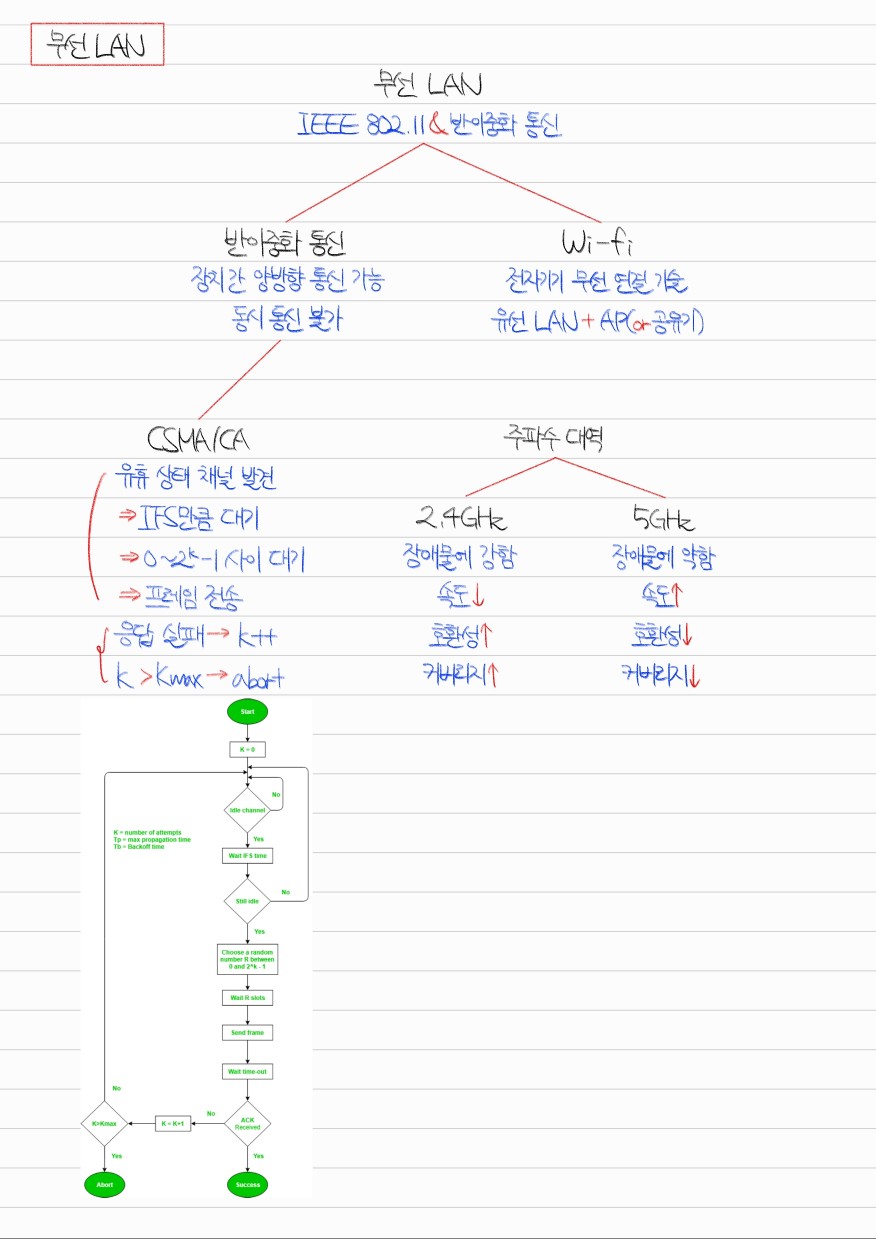 무선 LAN
무선 LAN
IEEE 802.11 & 반이중화 통신
반이중화 통신
장치간 양방향 통신 가능
동시 통신 불가
Wi-fi
전자기기 무선 연결 기술
유선 LAN + AP(or 공유기)
CSMA/CA
유휴 상태 채널 발견
⇒ IFS만큼 대기
⇒ 0~2ᵏ-1 사이 대기
⇒ 프레임 전송
응답 실패 → k++
k > Kmax → abort
주파수 대역
2.4GHz
장애물에 강함
속도↓
호환성↑
커버리지↑
5GHz
장애물에 약함
속도↑
호환성↓
커버리지↓
Start
K = 0
Idle channel
No
Yes
K = number of attempts
Tp = max propagation time
Tb = Backoff time
Wait IFS time
Still idle
No
Yes
Choose a random
number R between
0 and 2^k - 1
Wait R slots
Send frame
Wait time-out
ACK
Received
No
K = K+1
K>Kmax
No
Yes
Yes
Abort
Success